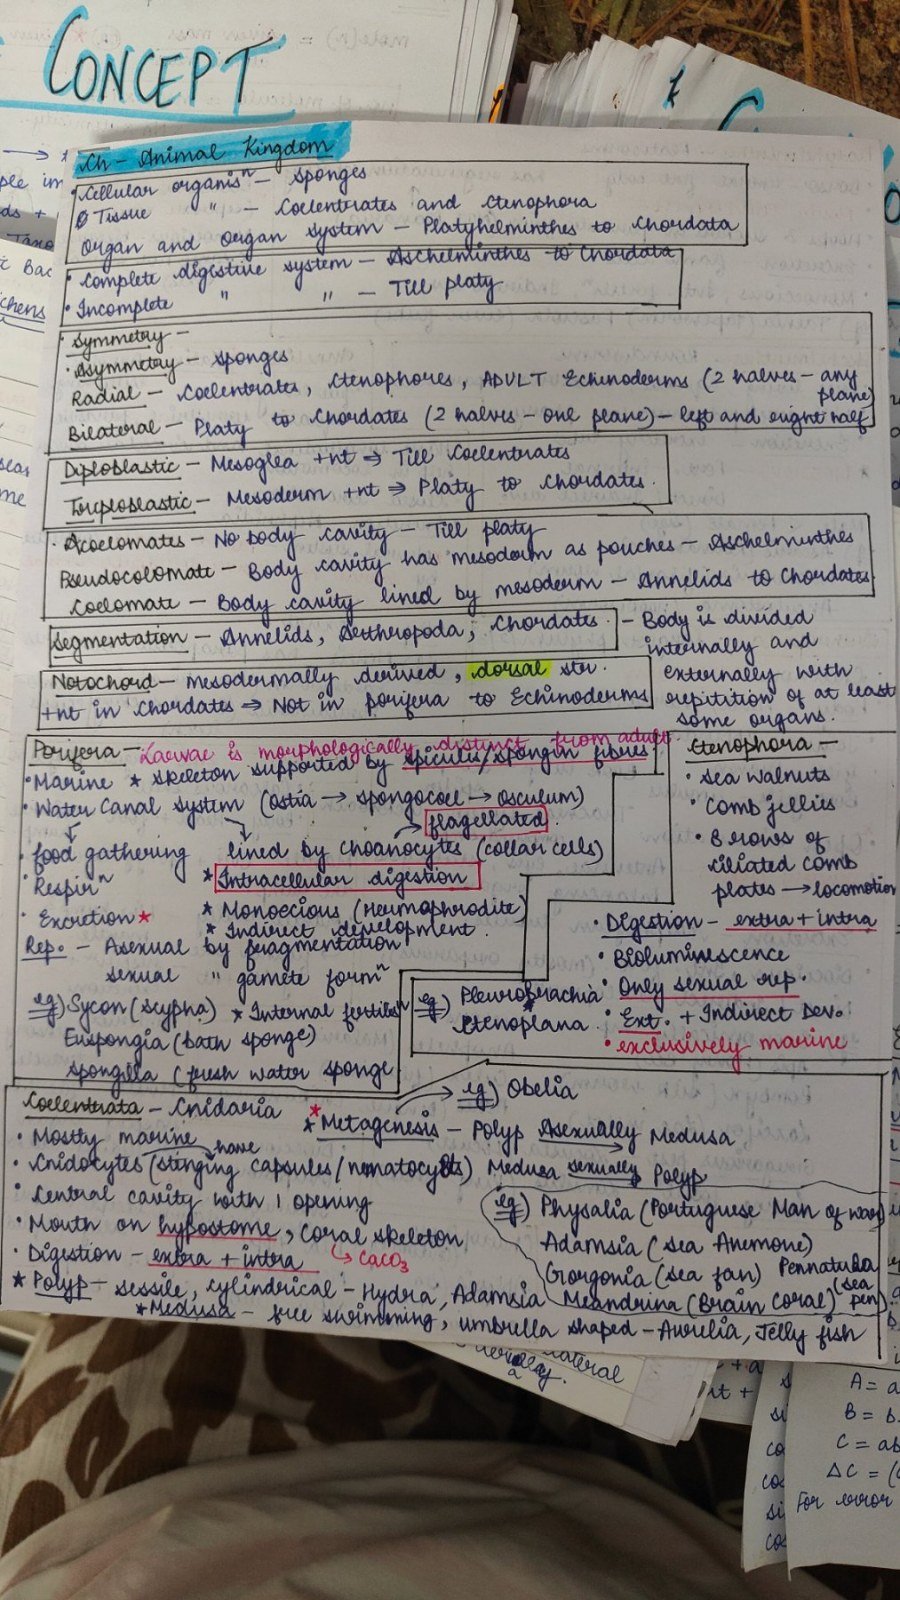 CONCEPT
Ch - Animal Kingdom
• Cellular organisⁿ - Sponges
Tissue " - Coelentrates and Ctenophora
Organ and Organ system - Platyhelminthes to Chordata
• Complete digestive system - Aschelminthes to Chordata
• Incomplete " " - Till platy
• Symmetry -
• Asymmetry - Sponges
Radial - Coelentrates, Ctenophores, ADULT Echinoderms (2 halves - any plane)
Bilateral - Platy to Chordates (2 halves - one plane) - left and right half
Diploblastic - Mesoglea +nt ⇒ Till Coelentrates
Triploblastic - Mesoderm +nt ⇒ Platy to Chordates.
• Acoelomates - No body cavity - Till platy
Pseudocolomate - Body cavity has mesoderm as pouches - Aschelminthes
Coelomate - Body cavity lined by mesoderm - Annelids to Chordates
Segmentation - Annelids, Arthropoda, Chordates.
- Body is divided
internally and
externally with
repitition of at least
some organs.
Notochord - mesodermally derived, dorsal str.
+nt in Chordates ⇒ Not in porifera to Echinoderms
Porifera - Laevae is morphologically distinct from adult.
• Marine * Skeleton supported by spiculis/spongin fibres
• Water Canal system (Ostia → spongocoel → Osculum)
flagellated.
• food gathering lined by choanocytes (collar cells)
• Respirⁿ * Intracellular digestion
• Excretion * * Monoecious (Hermophrodite)
* Indirect development.
Rep. - Asexual by fragmentation
sexual " gamete formⁿ
eg) Sycon (Scypha) * Internal fertilisⁿ
Euspongia (bath sponge)
Spongilla (fresh water sponge
Ctenophora -
• Sea walnuts
• Comb jellies
• 8 rows of
ciliated comb
plates → locomotion
• Digestion - extra + intra
• Bioluminescence
• Only sexual rep.
• Ext. + Indirect Dev.
• exclusively marine
eg) Pleurobrachia
Ctenoplana
Coelentrata - Cnidaria
• Mostly marine
have
• Cnidocytes (stinging capsules/nematocysts)
• Central cavity with 1 opening
• Mouth on hypostome, coral skeleton
• Digestion - extra + intra → CaCO₃
* Polyp - sessile, cylindrical - Hydra, Adamsia
* Medusa - free swimming, umbrella shaped - Aurelia, Jelly fish
* Metagenesis → eg) Obelia
- Polyp Asexually Medusa
Medusa sexually Polyp
eg) Physalia (Portuguese Man of war)
Adamsia (Sea Anemone)
Gorgonia (sea fan) Pennatula (sea pen)
Meandrina (Brain Coral)
A = a
B = b
C = ab
ΔC = (
For error